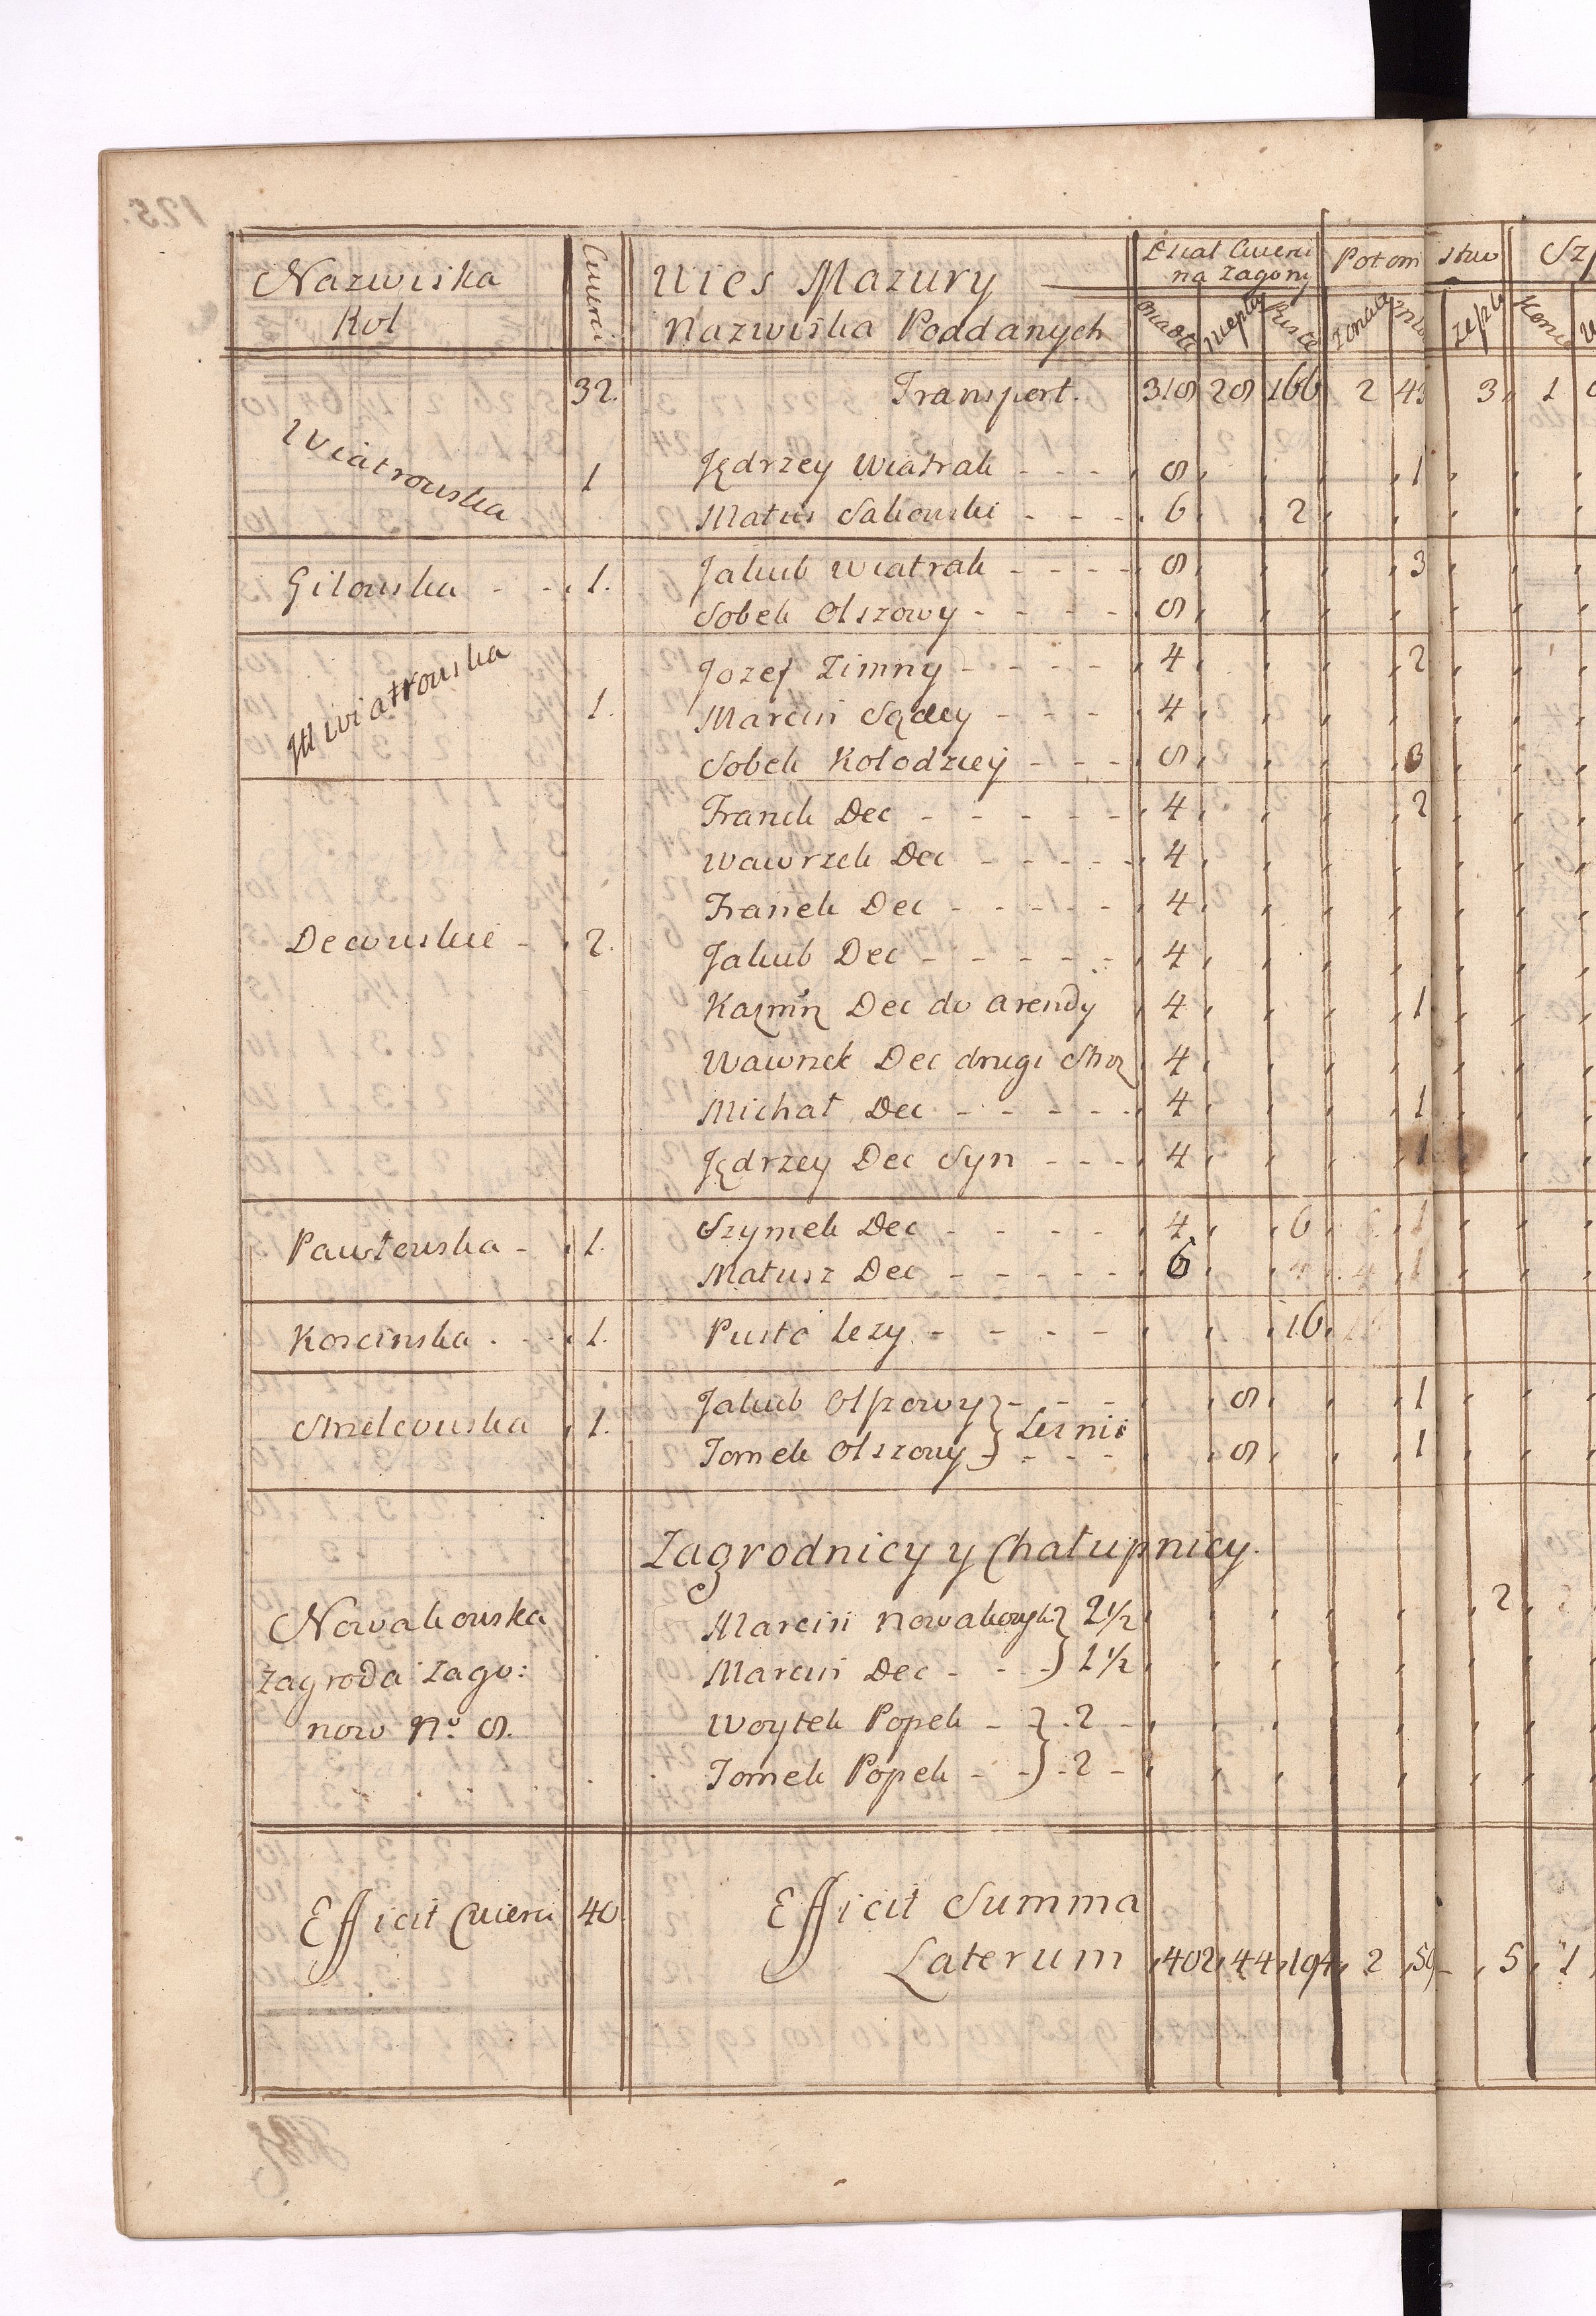 Nazwiska Rol Cwierci Wies Mazury Nazwiska Poddanych Dział Cwierci na Zagony Potomstwo
Osiadłe Puste
32. Transport. 318 28 166 2 3 1
Wiatrowska 1 Jędrzey Wiatrak 8 1
Matus Sakowski 6 2
Gilowska 1. Jakub Wiatrak 8 3
Sobek Olszowy 8
Wiatrowska 1. Jozef Zimny 4 2
Marcin Sądey 4
Sobek Kołodziey 8 3
Franek Dec 4 2
Wawrzek Dec 4
Franek Dec 4
Decowskie 2. Jakub Dec 4
Kazmirz Dec do arendy 4 1
Wawrzek Dec drugi Stroz 4
Michał Dec 4 1
Jędrzey Dec Syn 4 1
Pawłowska 1. Szymek Dec 4 6 1
Matusz Dec 6 4 1
Koscinska 1. Pusto lezy 16
Strzelcowska 1. Jakub Olszowy 8 1
Lesnii
Tomek Olszowy 8 1
Zagrodnicy y Chałupnicy.
Nowakowska Marcin Nowakowski 2½ 2
Zagroda Zago: Marcin Dec 1½
now No 8. Woytek Popek 2
Tomek Popek 2
Efficit Cwierci 40 Efficit Summa
Laterum 402 44 194 2 50 5 1
125.